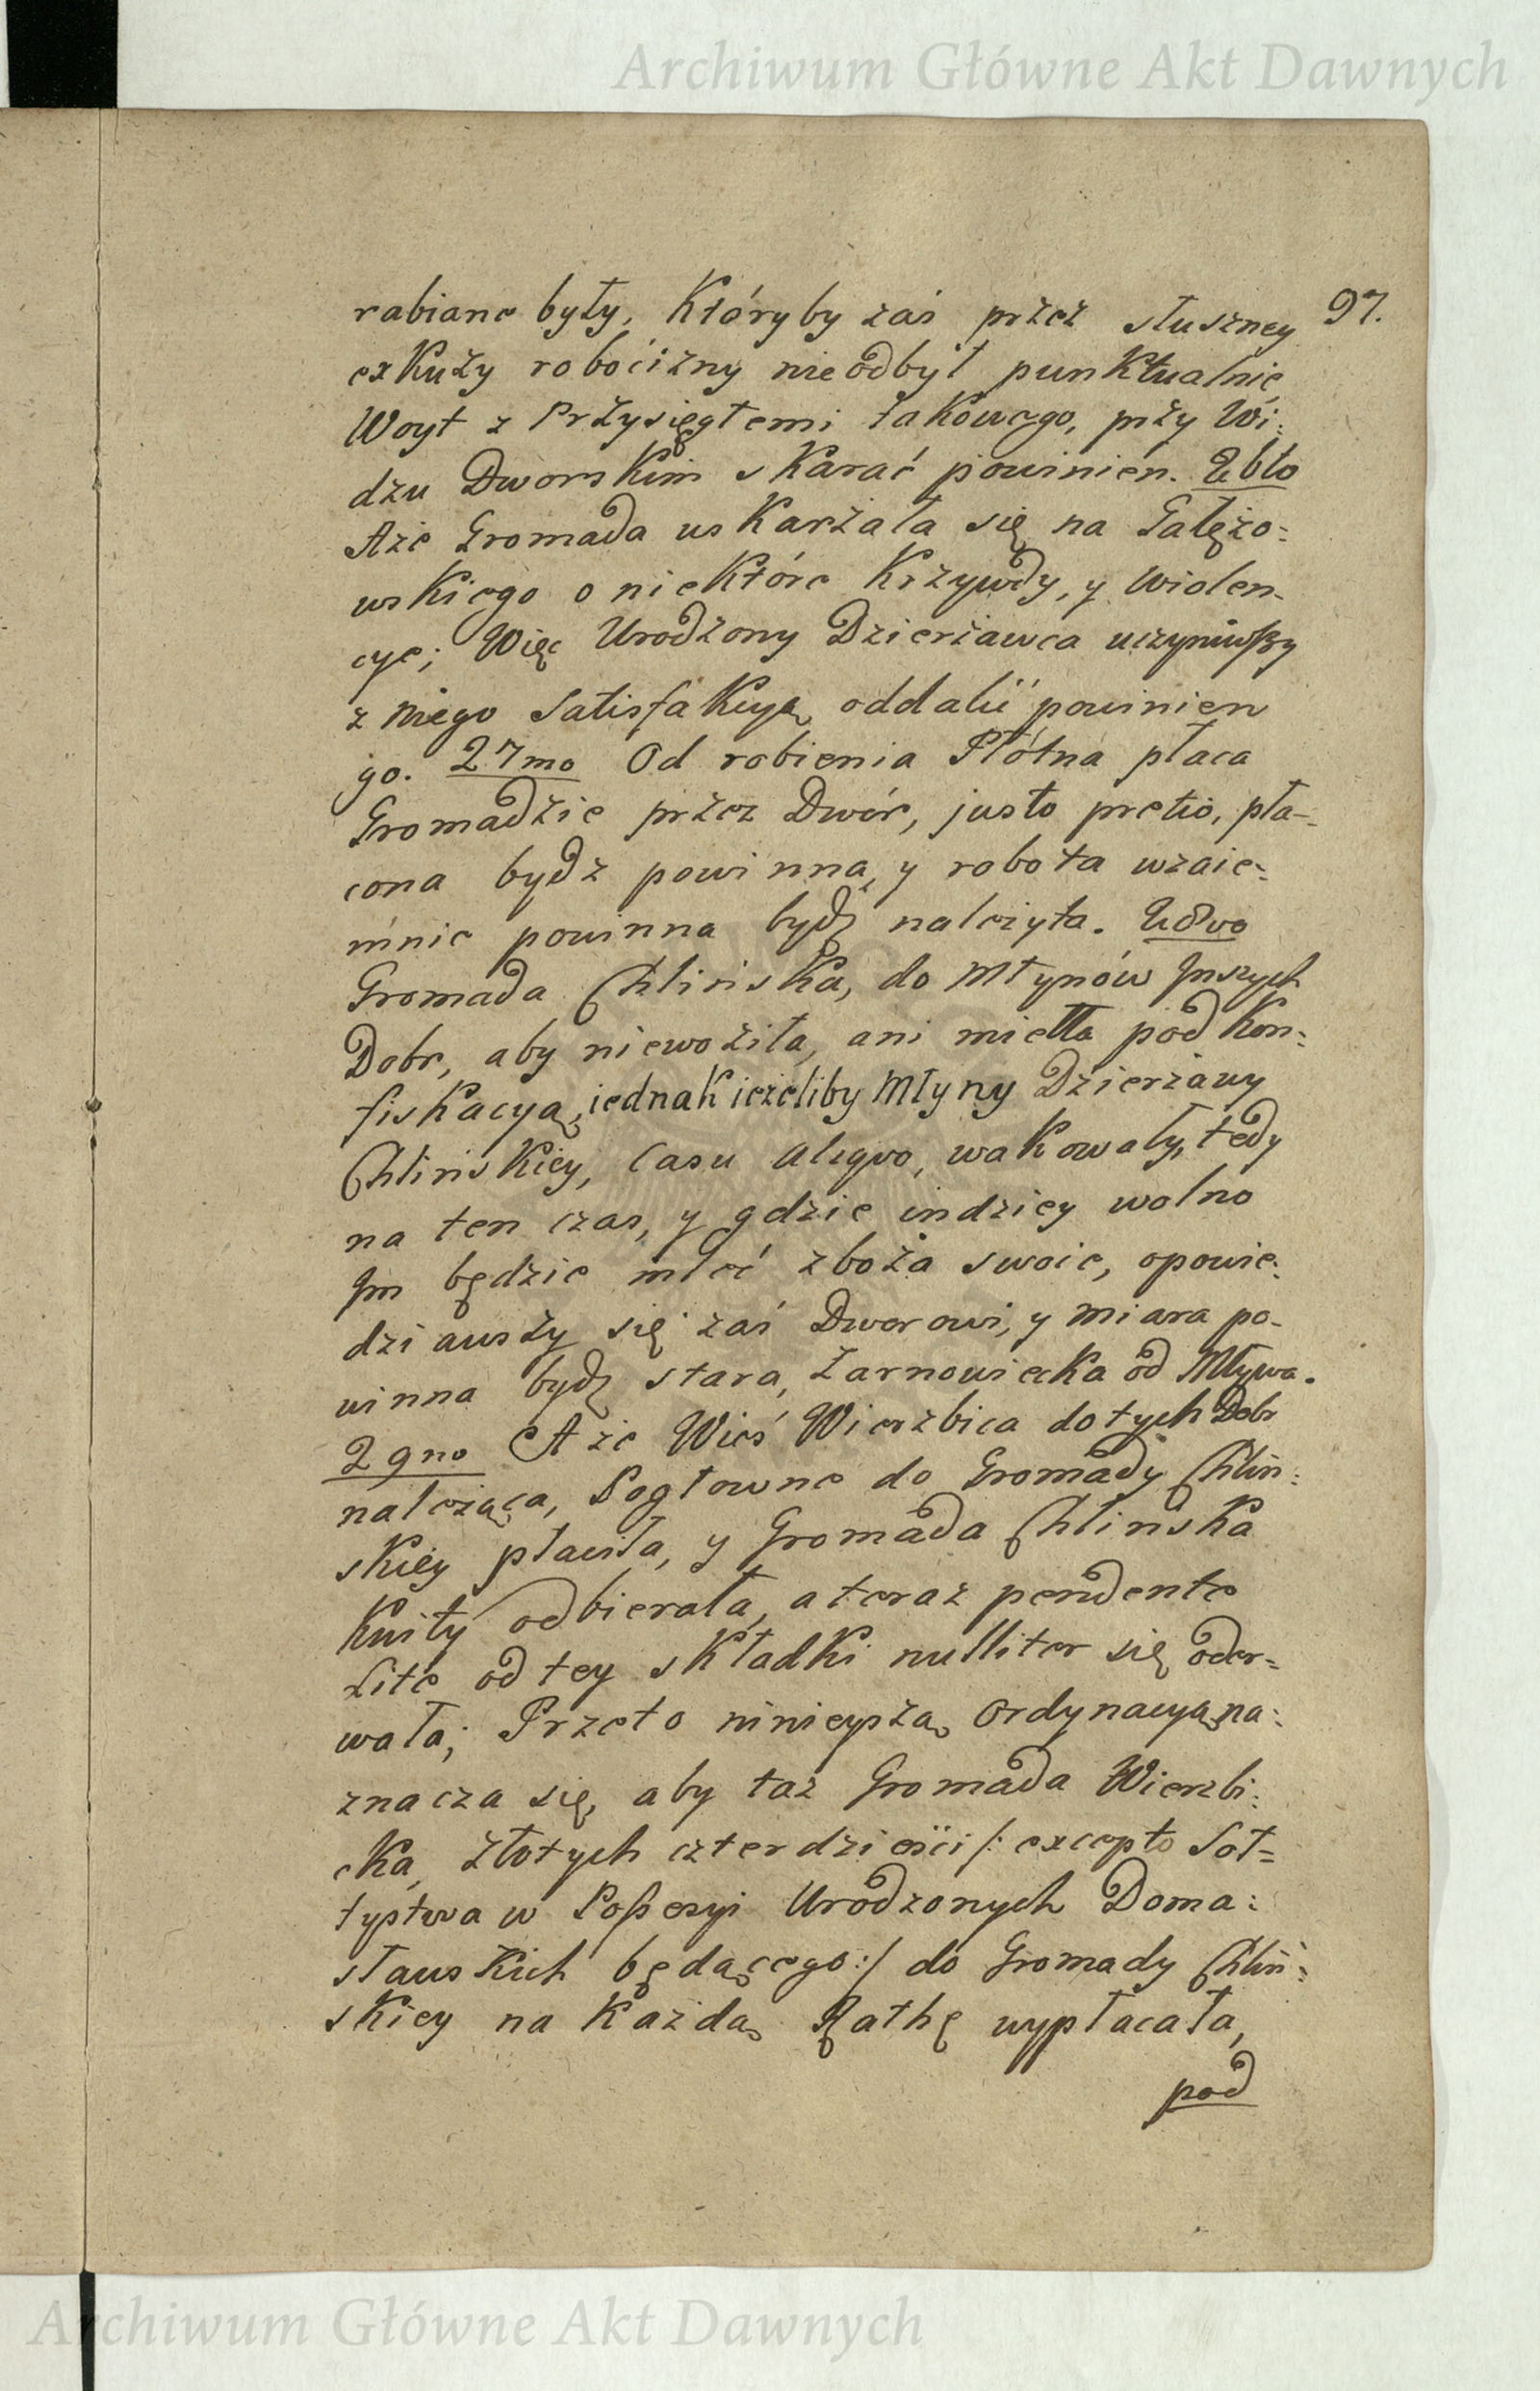 Archiwum Główne Akt Dawnych
97.
rabiane były, Któryby zaś przez słuszney
exkuzy robocizny nieodbył punktualnie
Woyt z Przysięgłemi takowego, przy Wi:
dzu Dworskim skarać powinien. 26to
Aże Gromada uskarżała się na Gałęzo:
wskiego o niektóre Krzywdy, y Wiolen-
cye; Więc Urodzony Dzierżawca uczyniwszy
z niego Satisfakcyą oddalić powinien
go. 27mo Od robienia Płótna płaca
Gromadzie przez Dwór, justo pretio, pła-
cona bydz powinna, y robota wzaie:
mnie powinna bydz należyta. 28vo
Gromada Chlińska, do Młynów Jnszych
Dobr, aby niewoziła, ani mełła pod Kon:
fiskacyą, iednak ieżeliby Młyny Dzierżawy
Chlińskiey, Casu aliqvo, wakowały, tedy
na ten czas, y gdzie indziey wolno
Jm będzie mleć zboża swoie, opowie:
dziawszy się zaś Dworowi, y miara po-
winna bydz stara, Żarnowiecka od Mlywa.
29no Aże Wieś Wierzbica do tych Dobr
należąca, Pogłowne do Gromady Chliń:
skiey płaciła, y Gromada Chlińska
Kwity odbierała, a teraz pendente
Lite od tey składki nulliter się oder=
wała; Przeto ninieyszą Ordynacyą na:
znacza się, aby taż Gromada Wierzbi:
cka, Złotych czterdzieści /: excepto Soł=
tystwa w Possesyi Urodzonych Doma:
sławskich będącego :/ do Gromady Chliń:
skiey na Każdą Rathę wypłacała,
pod
Archiwum Główne Akt Dawnych